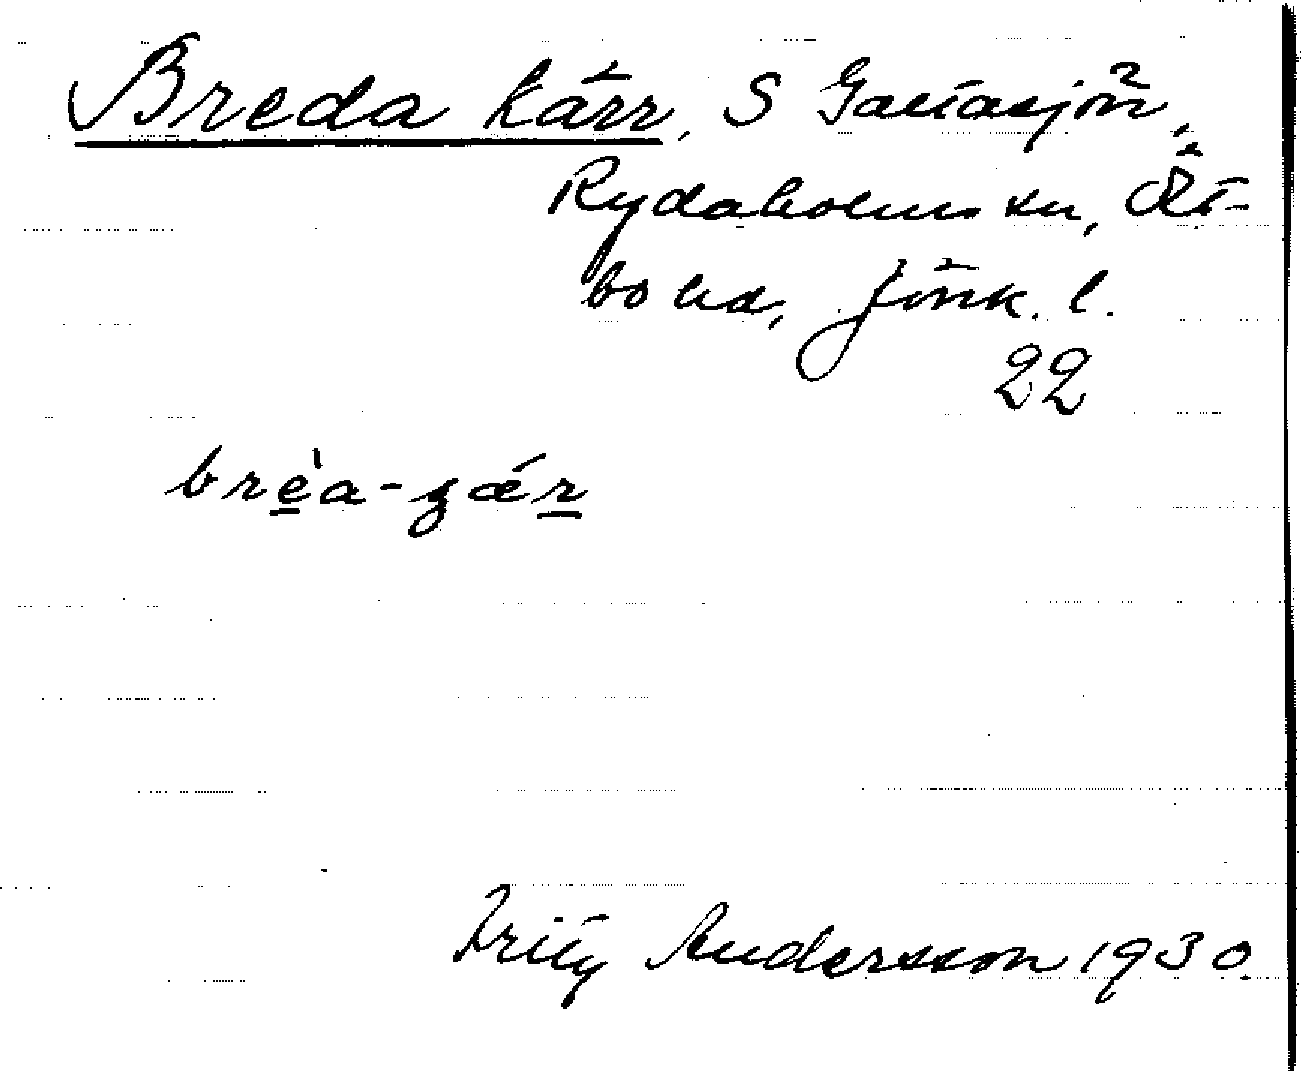 Breda kärr, S
Rydaholms sn, Öst-
bo hd, Jönk. l.
22
brè̱a-ʒǽr̲
Fritz Andersson 1930.